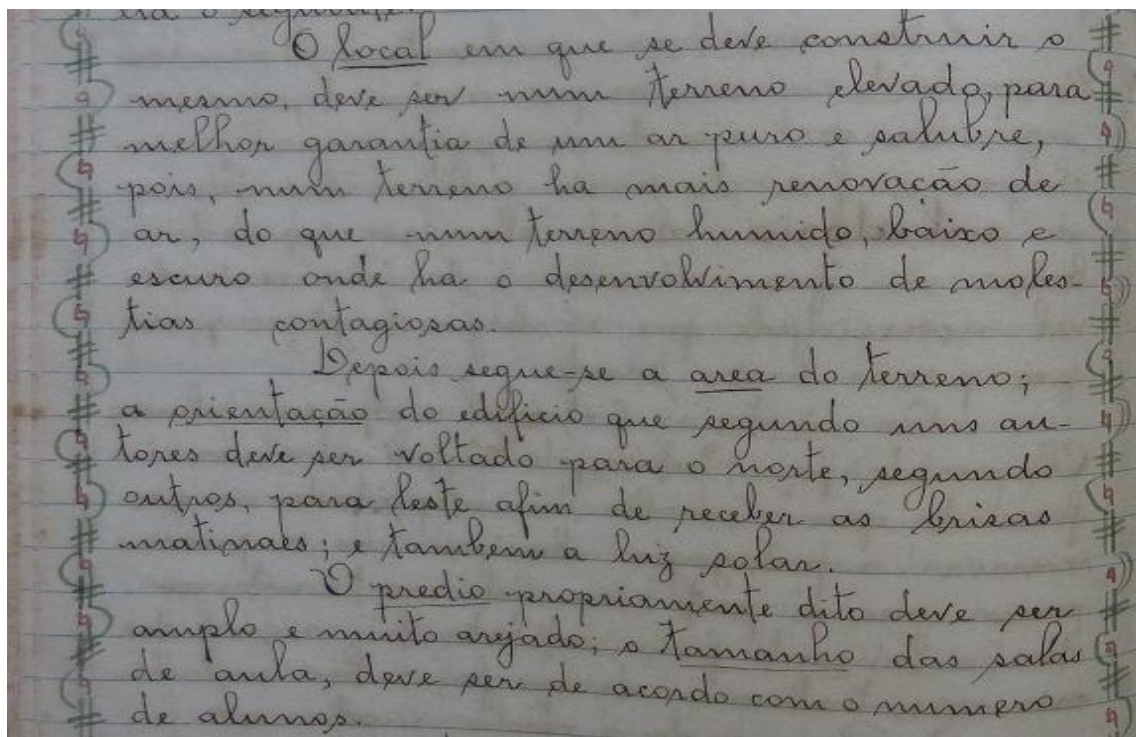 o seguinte:
O local em que se deve construir o
mesmo, deve ser num terreno elevado, para
melhor garantia de um ar puro e salubre,
pois, num terreno ha mais renovação de
ar, do que num terreno humido, baixo e
escuro onde ha o desenvolvimento de moles-
tias contagiosas.
Depois segue-se a area do terreno;
a orientação do edificio que segundo uns au-
tores deve ser voltado para o norte, segundo
outros, para leste afim de receber as brisas
matinaes; e tambem a luz solar.
O predio propriamente dito deve ser
amplo e muito arejado; o tamanho das salas
de aula, deve ser de acordo com o numero
de alunos.